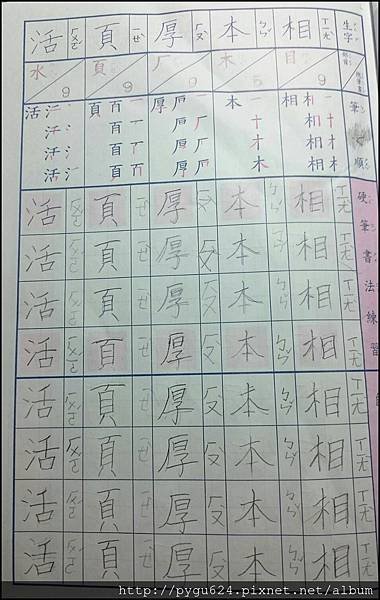 生字 筆順 硬筆書法練習
相 ㄒㄧㄤ
目 9
一 十 才 木 相 相 相
相 ㄒㄧㄤ
相 ㄒㄧㄤ
相 ㄒㄧㄤ
相 ㄒㄧㄤ
相 ㄒㄧㄤ
相 ㄒㄧㄤ
相 ㄒㄧㄤ
相 ㄒㄧㄤ
本 ㄅㄣˇ
木 5
一 十 才 木 本
本 ㄅㄣˇ
本 ㄅㄣˇ
本 ㄅㄣˇ
本 ㄅㄣˇ
本 ㄅㄣˇ
本 ㄅㄣˇ
本 ㄅㄣˇ
本 ㄅㄣˇ
厚 ㄏㄡˋ
厂 9
一 厂 厚
厚 ㄏㄡˋ
厚 ㄏㄡˋ
厚 ㄏㄡˋ
厚 ㄏㄡˋ
厚 ㄏㄡˋ
厚 ㄏㄡˋ
厚 ㄏㄡˋ
厚 ㄏㄡˋ
頁 ㄧㄝˋ
頁 9
一 百 頁
頁 ㄧㄝˋ
頁 ㄧㄝˋ
頁 ㄧㄝˋ
頁 ㄧㄝˋ
頁 ㄧㄝˋ
頁 ㄧㄝˋ
頁 ㄧㄝˋ
頁 ㄧㄝˋ
活 ㄏㄨㄛˊ
水 9
氵 活 活
活 ㄏㄨㄛˊ
活 ㄏㄨㄛˊ
活 ㄏㄨㄛˊ
活 ㄏㄨㄛˊ
活 ㄏㄨㄛˊ
活 ㄏㄨㄛˊ
活 ㄏㄨㄛˊ
活 ㄏㄨㄛˊ
http://pygu624.pixnet.net/album